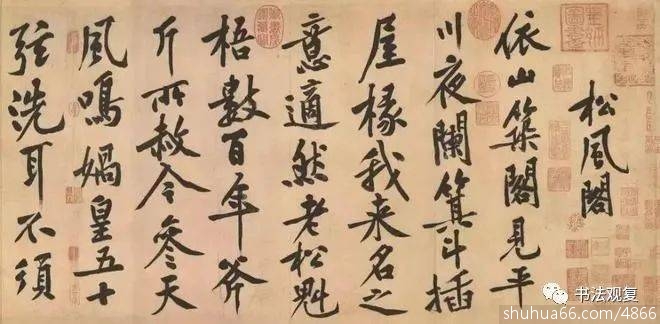 松風閣
依山築閣見平
川夜闌箕斗插
屋椽我来名之
意適然老松魁
梧數百年斧
斤所赦今參天
風鳴媧皇五十
弦洗耳不須
书法观复
shuhua66.com/4866